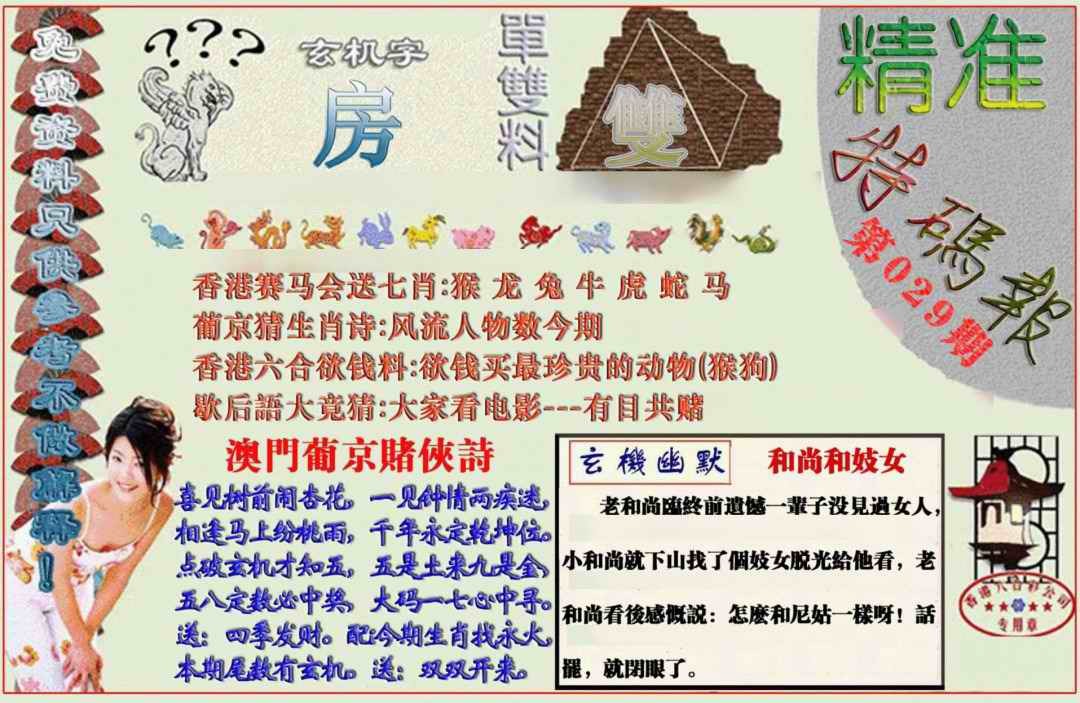 免费资料只供参考不做解释！
???
玄机字
房
單雙料
雙
精准
特碼報
第029期
香港赛马会送七肖:猴 龙 兔 牛 虎 蛇 马
葡京猜生肖诗:风流人物数今期
香港六合欲钱料:欲钱买最珍贵的动物(猴狗)
歇后語大竞猜:大家看电影---有目共赌
澳門葡京賭俠詩
喜见树前闹杏花，一见钟情两疾迷，
相逢马上纷桃雨，千年永定乾坤位。
点破玄机才知五，五是土来九是金，
五八定数必中奖，大码一七心中寻。
送：四季发财。配:今期生肖找永火，
本期尾数有玄机。送：双双开来。
玄機幽默
和尚和妓女
老和尚臨終前遺憾一輩子没見過女人，
小和尚就下山找了個妓女脱光給他看，老
和尚看後感慨説：怎麽和尼姑一樣呀！話
罷，就閉眼了。
香港六合彩公司
专用章